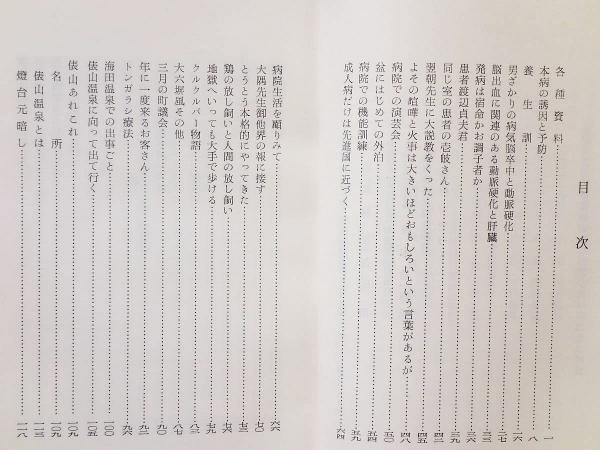 目次
各種資料……一
本病の誘因と予防……八
養生訓……一六
男ざかりの病気脳卒中と動脈硬化……二七
脳出血に関連のある動脈硬化と肝臓……三二
発病は宿命かお調子者か……三六
患者渡辺貞夫君……三九
同じ室の患者の壱岐さん……四二
翌朝先生に大説教をくった……四五
よその喧嘩と火事は大きいほどおもしろいという言葉があるが……四八
病院での演芸会……五〇
盆にはじめての外泊……五四
病院での機能訓練……五九
成人病だけは先進国に近づく……六四
病院生活を顧りみて……六六
大隅先生御他界の報に接す……七〇
とうとう本格的にやってきた……七三
鶏の放し飼いと人間の放し飼い……七六
地獄へいっても大手で歩ける……七九
クルクルパー物語……八三
大六堀風その他……八七
三月の町議会……九〇
年に一度来るお客さん……九二
トンガラシ療法……九六
海田温泉での出事ごと……一〇〇
俵山温泉に向って出て行く……一〇五
俵山あれこれ……一〇九
名所……一〇九
俵山温泉とは……一一三
燈台元暗し……一一八